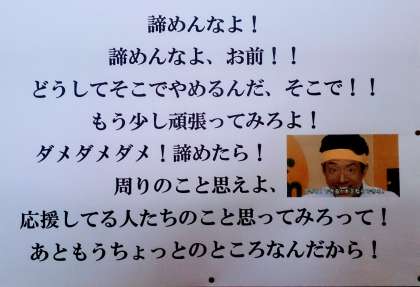 諦めんなよ！
諦めんなよ、お前！！
どうしてそこでやめるんだ、そこで！！
もう少し頑張ってみろよ！
ダメダメダメ！諦めたら！
周りのこと思えよ、
応援してる人たちのこと思ってみろって！
あともうちょっとのところなんだから！